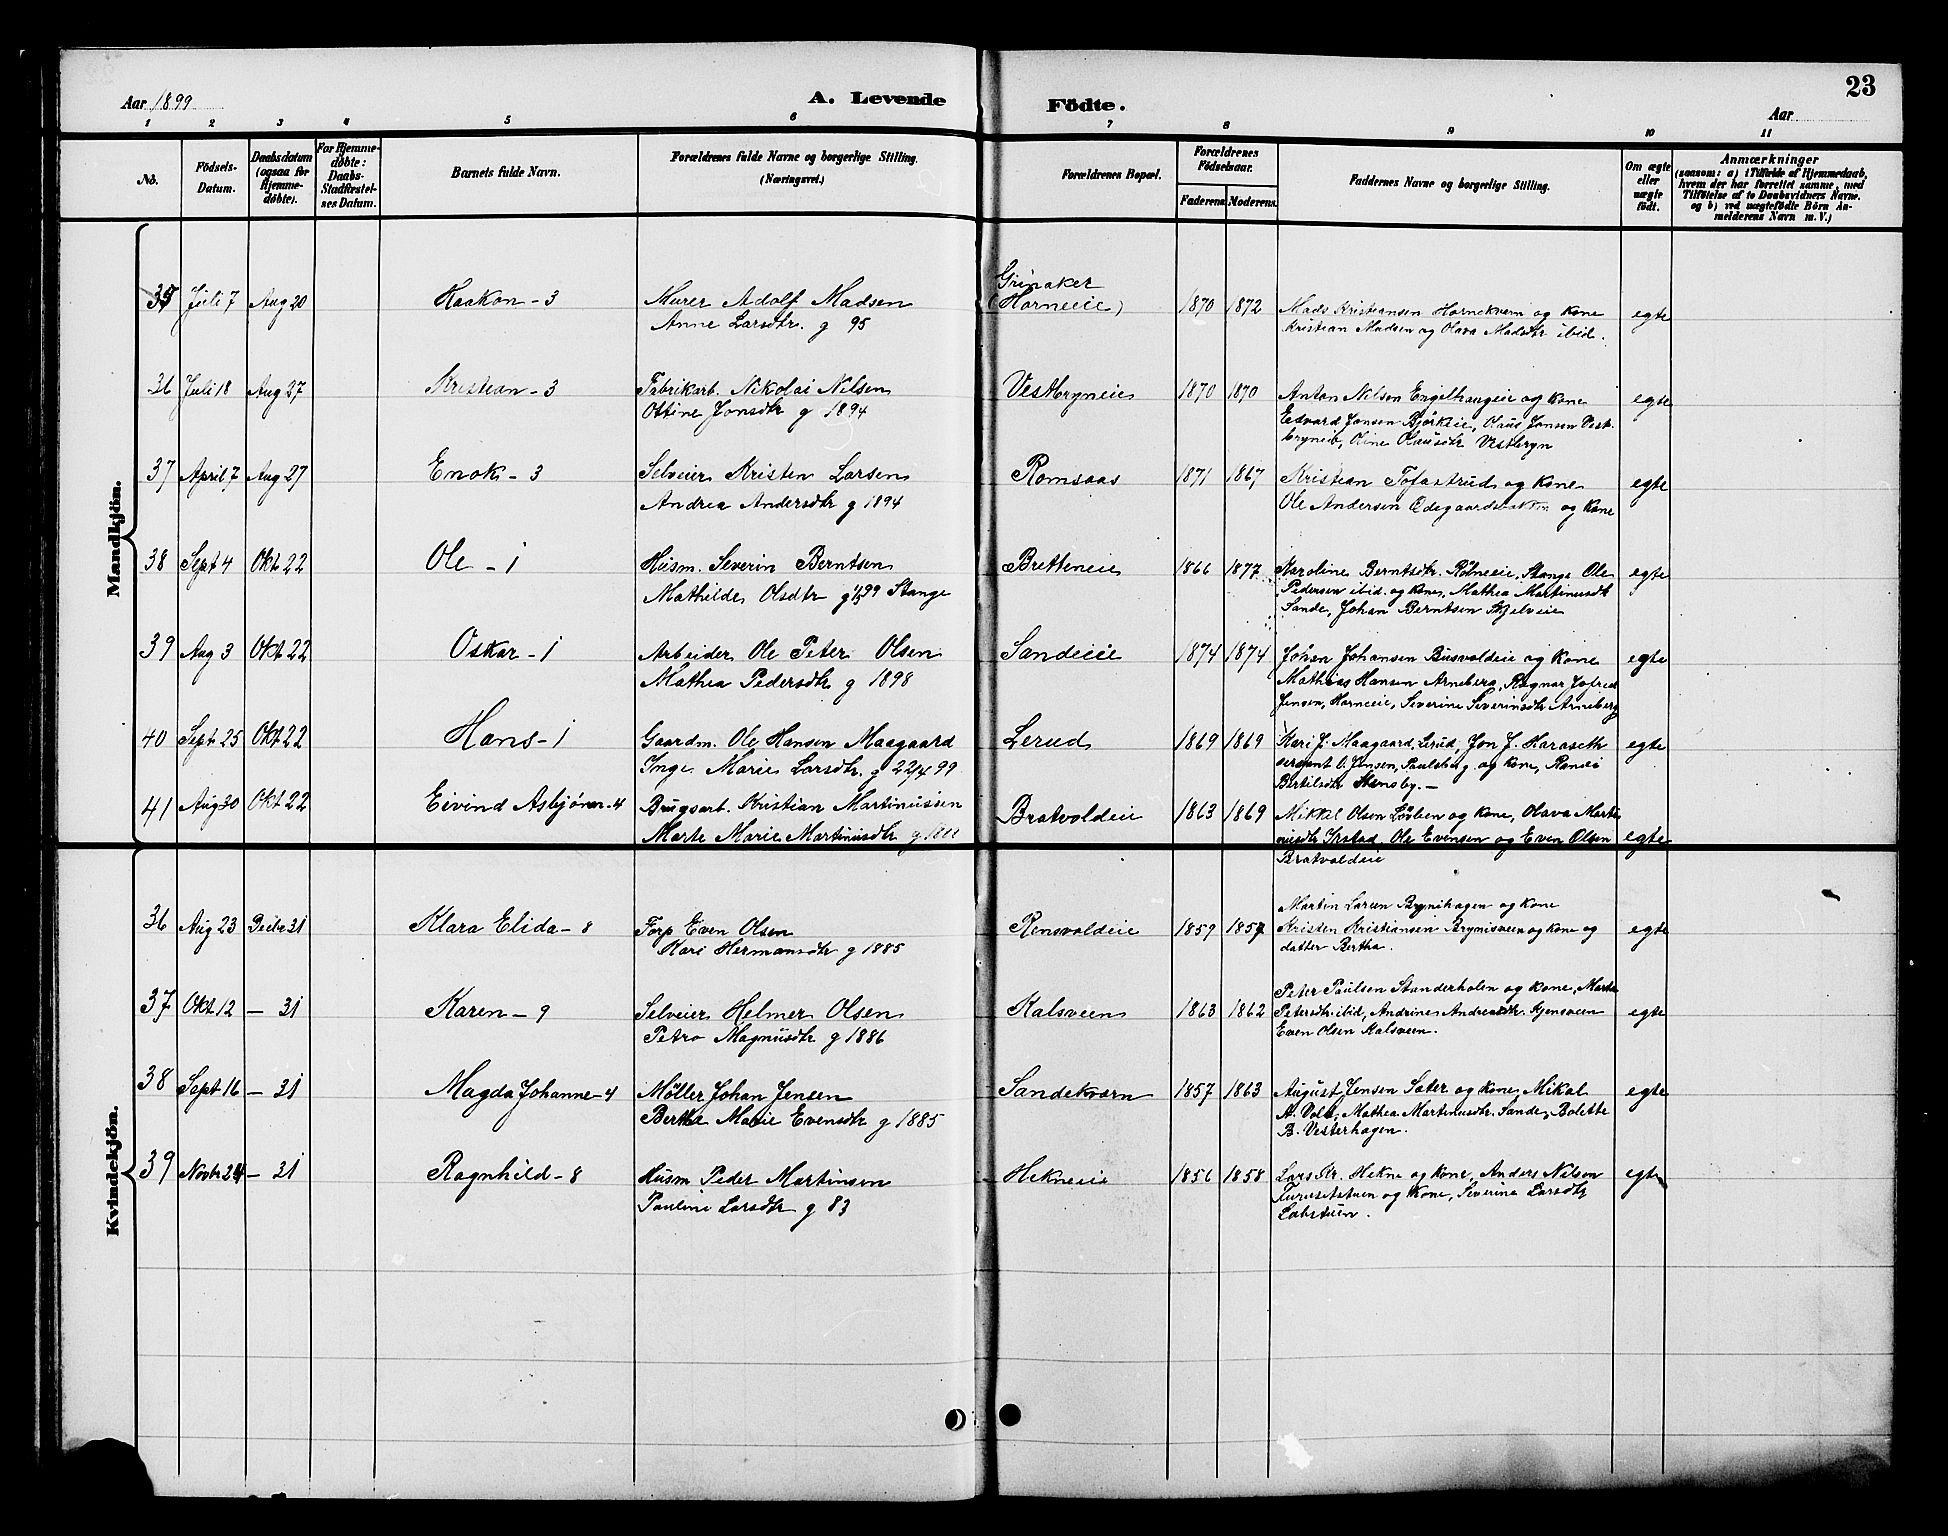 23
Aar 1899 A. Levende Födte. Aar
1 2 3 4 5 6 7 8 9 10 11
No.
Födsels-Datum.
Daabsdatum (ogsaa for Hjemmedöbte).
For Hjemmedöbte: Daabs-Stadfæstelses Datum.
Barnets fulde Navn.
Forældrenes fulde Navne og borgerlige Stilling. (Næringsvei.)
Forældrenes Bopæl.
Forældrenes Födselsaar.
Faderens. Moderens.
Faddernes Navne og borgerlige Stilling.
Om ægte eller uægte födt.
Anmærkninger
(saasom: a) i Tilfælde af Hjemmedaab, hvem der har forrettet samme, med Tilföielse af to Daabsvidners Navne. og b) ved uægtefödte Börn Anmelderens Navn m. V.)
Mandkjön.
35 Juli 7 Aug 20 Haakon - 3 Murer Adolf Madsen Grinaker (Horneeie) 1870 1872 Mads Kristiansen Hornekvern og kone egte
Anne Larsdtr. g 95 Kristian Madsen og Olava Madsdtr ibid.
36 Juli 18 Aug 27 Kristian - 3 Fabrikarb. Nikolai Nilsen Vestbryneie 1870 1870 Anton Nilsen Engelhaugeie og kone egte
Ottine Jonsdtr g 1894 Edvard Jensen Björkeie, Olaus Jonsen Vest-
bryneie, Oline Olausdtr Vestbryn
37 April 7 Aug 27 Enok - 3 Selveier Kristen Larsen Romsaas 1871 1867 Kristian Tofastrud og kone egte
Andrea Andersdtr g 1894 Ole Andersen Ödegaardsbakken og kone
38 Sept 4 Okt 22 Ole - 1 Husm. Severin Berntsen Bretteneie 1866 1877 Karoline Berntsdtr. Rölneeie, Stange Ole egte
Mathilde Olsdtr g 99 Stange Pedersen ibid. og kone, Mathea Martinusdtr
Sande, Johan Berntsen Skjelveie
39 Aug 3 Okt 22 Oskar - 1 Arbeider Ole Peter Olsen Sandeeie 1874 1874 Johan Johansen Busvoldeie og kone egte
Mathea Pedersdtr g 1898 Mathias Hansen Arneberg, Ragnar Jofred
Jensen, Horneeie, Severine Severinsdtr Arneberg
40 Sept 25 Okt 22 Hans - 1 Gaardm. Ole Hansen Maagaard Lerud 1869 1869 Kari J. Maagaard, Lerud, Jon J. Haraseth egte
Inge Marie Larsdtr. g 22/4 99 sersjant O. Jensen, Paulsberg og kone, Randi
Bertilsdtr Stensby. -
41 Aug 30 Okt 22 Eivind Asbjörn - 4 Brugsarb. Kristian Martinussen Bratvoldeie 1863 1869 Mikkel Olsen Löbben og kone, Olava Marti-
Marte Marie Martinusdtr g nusdtr Irstad, Ole Evensen og Even Olsen egte
Bratvoldeie
Kvindekjön.
36 Aug 23 Decbr 31 Klara Elida - 8 Forp Even Olsen Rensvoldeie 1859 1857 Martin Larsen Brynihagen og kone
Kari Hermansdtr g 1885 Kristen Kristiansen Brynisveen og kone og egte
datter Bertha.
37 Okt 12 - 31 Karen - 9 Selveier Helmer Olsen Kalsveen 1863 1862 Peter Paulsen Standerholen og kone, Marte
Petra Magnusdtr g 1886 Petersdtr ibid, Andrine Andreasdtr. Kjensveen egte
Even Olsen Kalsveen.
38 Sept 16 - 31 Magda Johanne - 4 Möller Johan Jensen Sandekvern 1857 1863 August Jensen Sater og kone, Mikal egte
Berthe Marie Evensdtr g 1885 A. Vold, Mathea Martinusdtr. Sande, Bolette
B. Vesterhagen.
39 Novbr 24 - 31 Ragnhild - 8 Husm Peder Martinsen Hekneeie 1856 1858 Lars Kr. Hekne og kone, Anders Nilsen egte
Pauline Larsdtr g 83 Furusetstuen og kone, Severine Larsdtr
Labstuen.